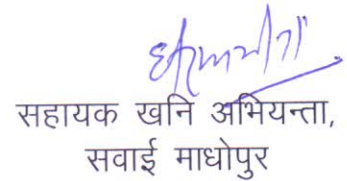 सहायक खनि अभियन्ता,
सवाई माधोपुर